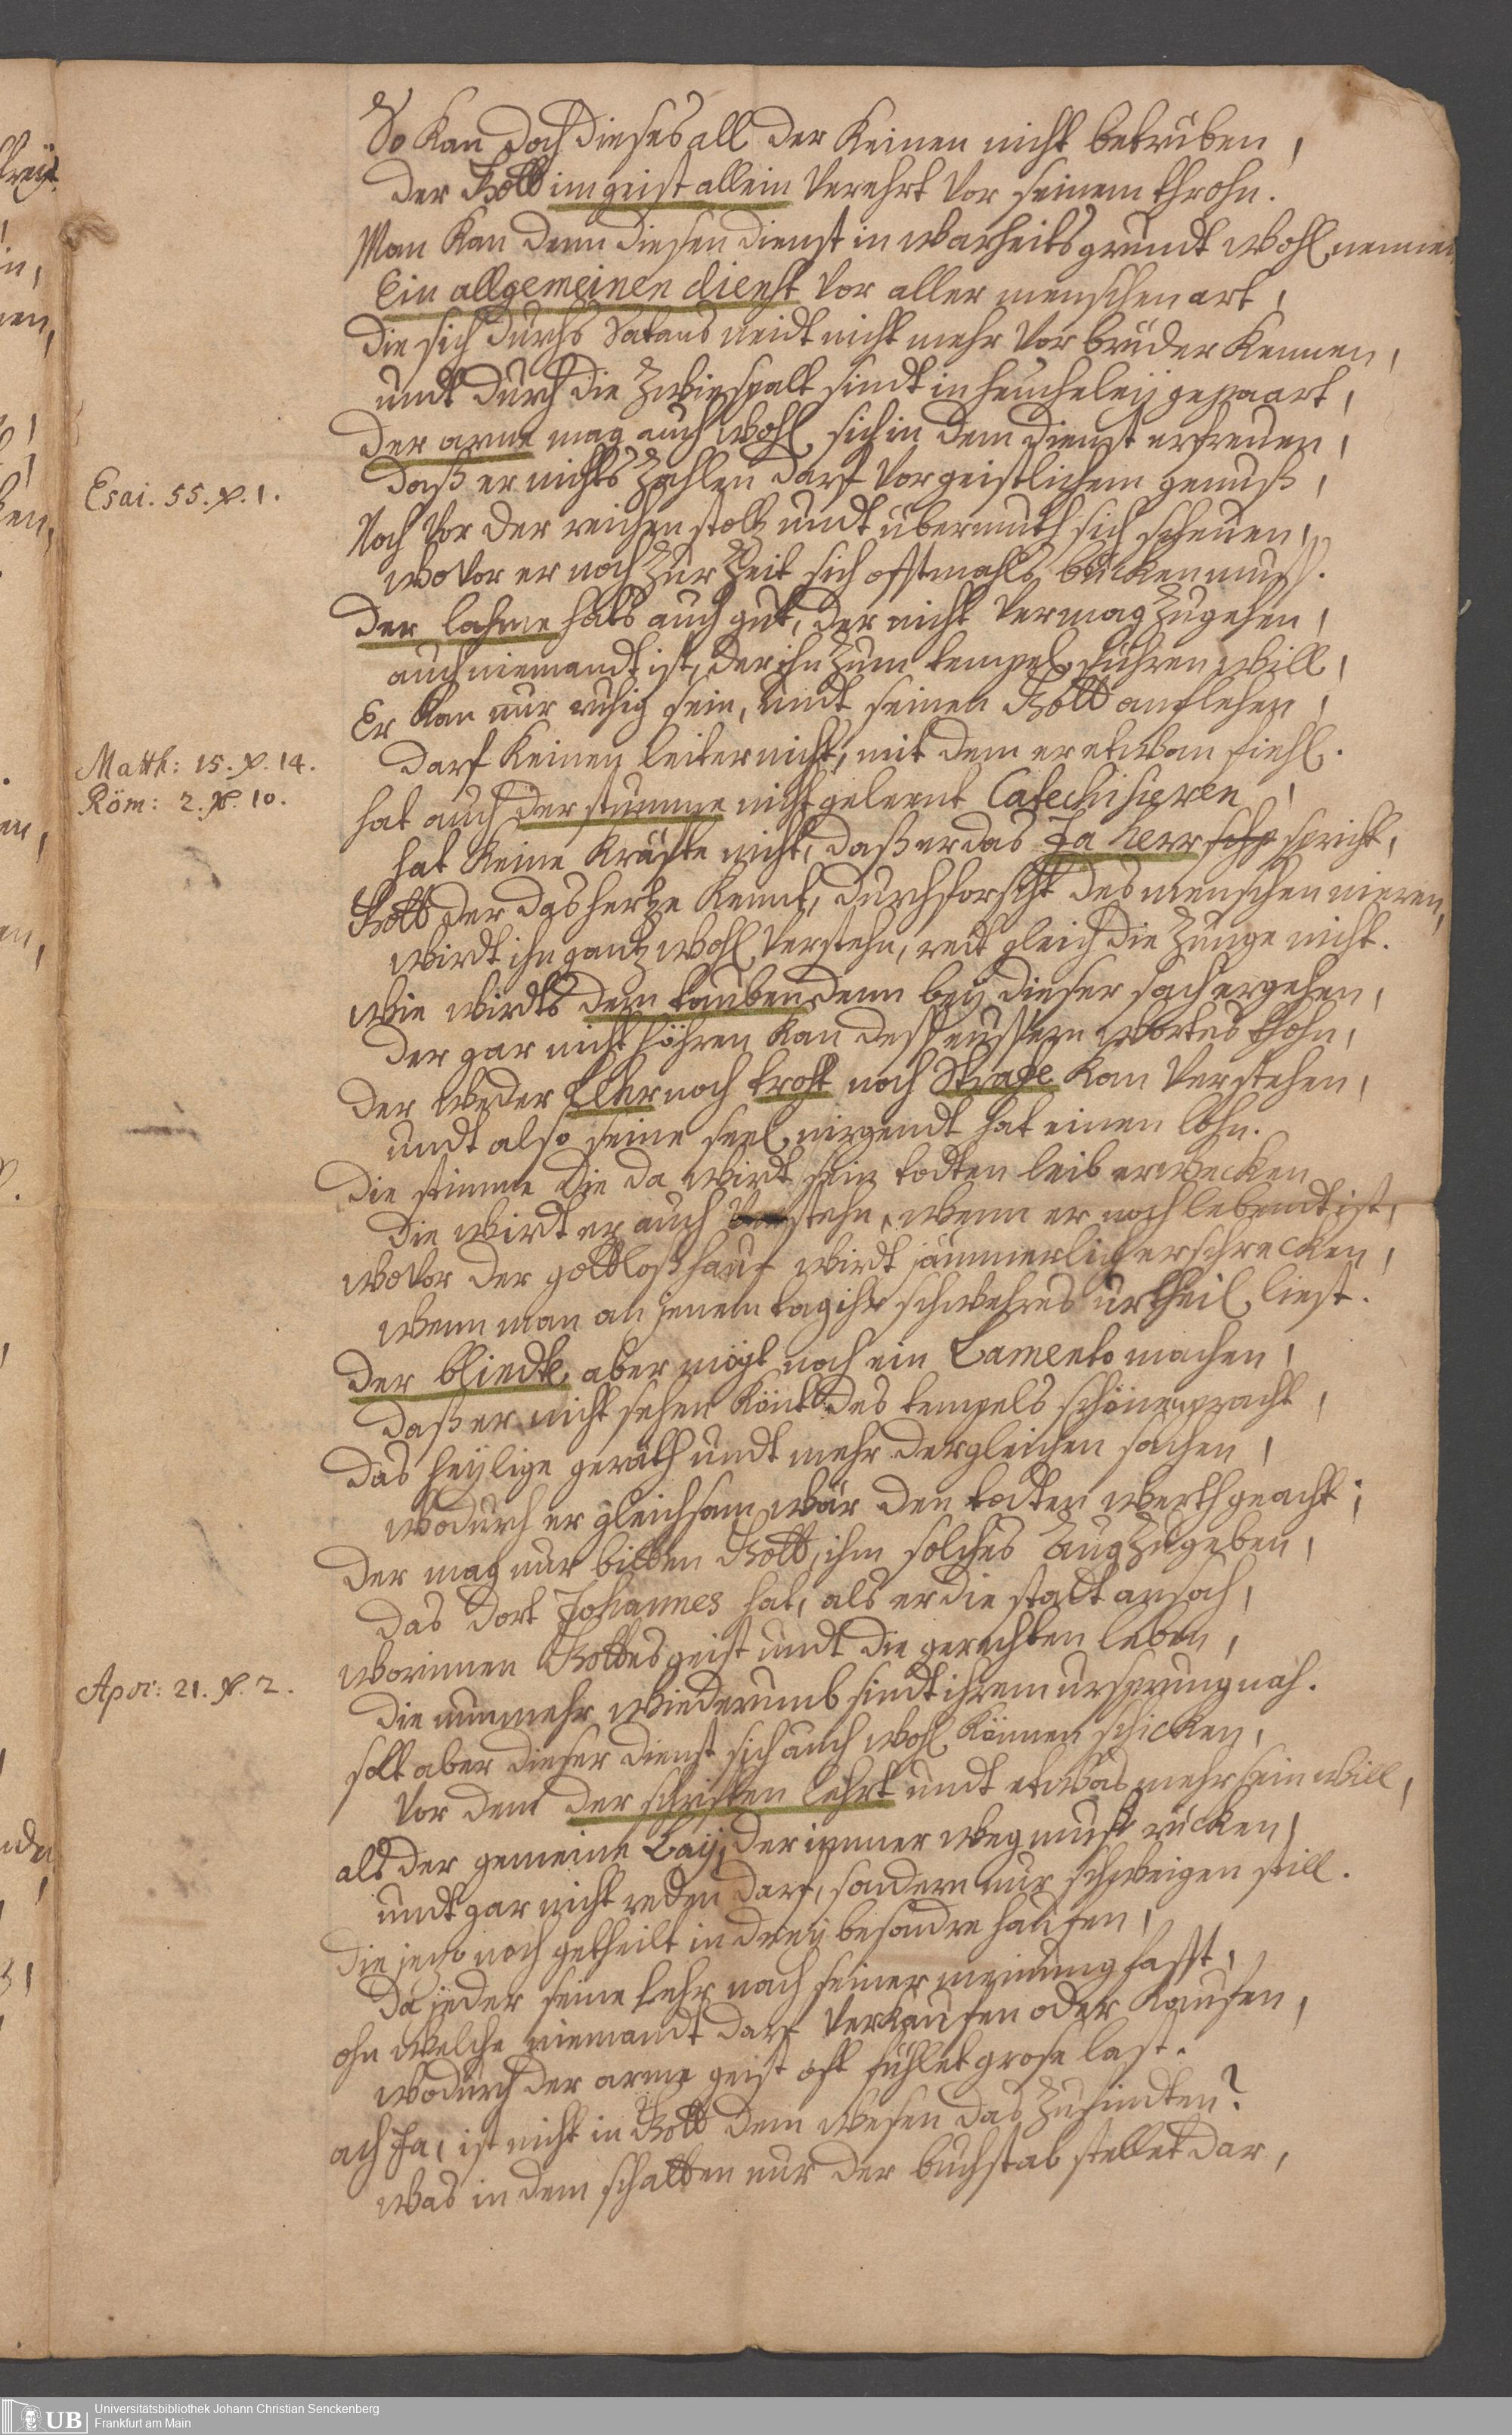 So kan doch dieses all der keinen nicht betrüben,
der Gott im geist allein verehrt vor seinem throhn.
Man kan denn diesen dienst in warheits grundt wohl nennen
Ein allgemeinen dienst vor aller menschen art,
die sich durchs Satans neidt nicht mehr vor brüder kennen,
undt durch die zwiespalt sindt in heucheleij gepaart,
der arme mag auch wohl sich in dem dienst erfreuen,
Esai. 55. ℣. 1.
daß er nichts zahlen darf vor geistlichem genuß,
Noch vor der reichen stoltz undt übermuth sich scheuen,
wovor er noch zur zeit sich oftmahls bücken muß.
der lahme hats auch gut, der nicht vermag zu gehen,
auch niemandt ist, der ihn zum tempel führen will,
Er kan nur ruhig sein, undt seinen Gott anflehen,
Matth: 15. ℣. 14.
darf keinen leiter nicht, mit dem er etwan fiehl.
Röm: 2. ℣. 10.
hat auch der stumme nicht gelernt Catechisiren,
hat keine kräfte nicht, daß er das Ja herr spricht,
Gott der das hertze kennt, durchforscht des menschen nieren,
wirdt ihn gantz wohl verstehn, redt gleich die zunge nicht.
wie wirdts dem tauben denn beij dieser sach ergehen,
der gar nicht höhren kan deß eussern wortes thon,
der weder noch trost noch Strafe kan verstehen,
undt also seine seel nirgendt hat einen lohn.
die stimme die da wirdt sein todten leib erwecken
die wirdt er auch verstehn, wenn er noch lebendt ist,
wovor der gottloß hauf wirdt jämmerlich erschrecken,
wenn man an jenem tag ihr schwehres urtheil liest.
der bliedte aber mögt noch ein Lamento machen,
daß er nicht sehen könt des tempels schöne pracht,
das heijlige geräth undt mehr dergleichen sachen,
wodurch er gleichsam wär den todten werth geacht;
der mag nur bitten Gott, ihm solches aug zu geben,
das dort Johannes hat, als er die statt ansah,
worinnen Gottes geist undt die gerechten leben,
Apoc: 21. ℣. 2.
die nunmehr wiederumb sindt ihrem ursprung nah.
solt aber dieser dienst sich auch wohl können schicken,
vor dem der schriften lehrt undt etwas mehr sein will,
als der gemeine Laij, der immer weg muß rücken,
undt gar nicht reden darf, sondern nur schweigen still.
die jezo noch getheilt in dreij besondre haufen,
da jeder seine lehr nach seiner meinung fasst,
ohn welche niemandt darf verkaufen oder kaufen,
wodurch der arme geist oft fühlet grose last.
ach Ja, ist nicht in Gott dem wesen das zu findten?
was in dem schatten nur der buchstab stellet dar,
UB Universitätsbibliothek Johann Christian Senckenberg
Frankfurt am Main